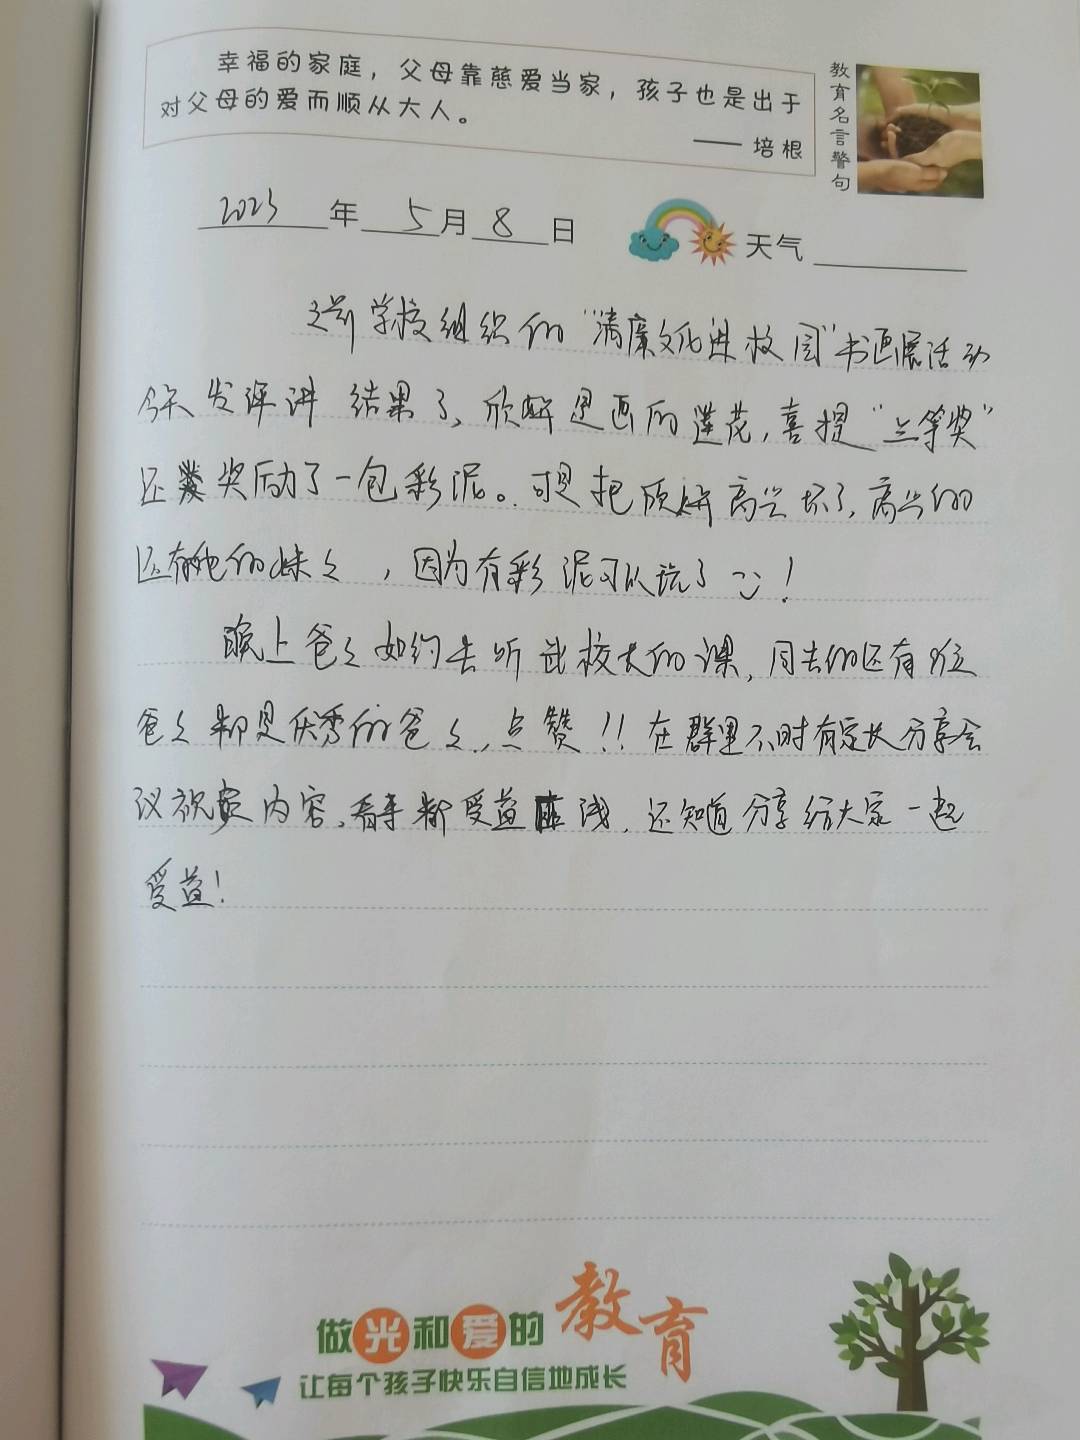 幸福的家庭，父母靠慈爱当家，孩子也是出于
对父母的爱而顺从大人。
—— 培根
教育名言警句
2023年5月8日
天气
之前学校组织的“清廉文化进校园”书画展活动
今天发评讲结果了，欣妍是画的莲花，喜提“三等奖”
还奖励了一包彩泥。可是把欣妍高兴坏了，高兴的
还有她的妹々，因为有彩泥可以玩了！
晚上爸々如约去听 校长的课，同去的还有 位
爸々都是优秀的爸々，点赞！！在群里不时有家长分享会
议视频内容，看来都受益匪浅，还知道分享给大家一起
受益！
做光和爱的教育
让每个孩子快乐自信地成长